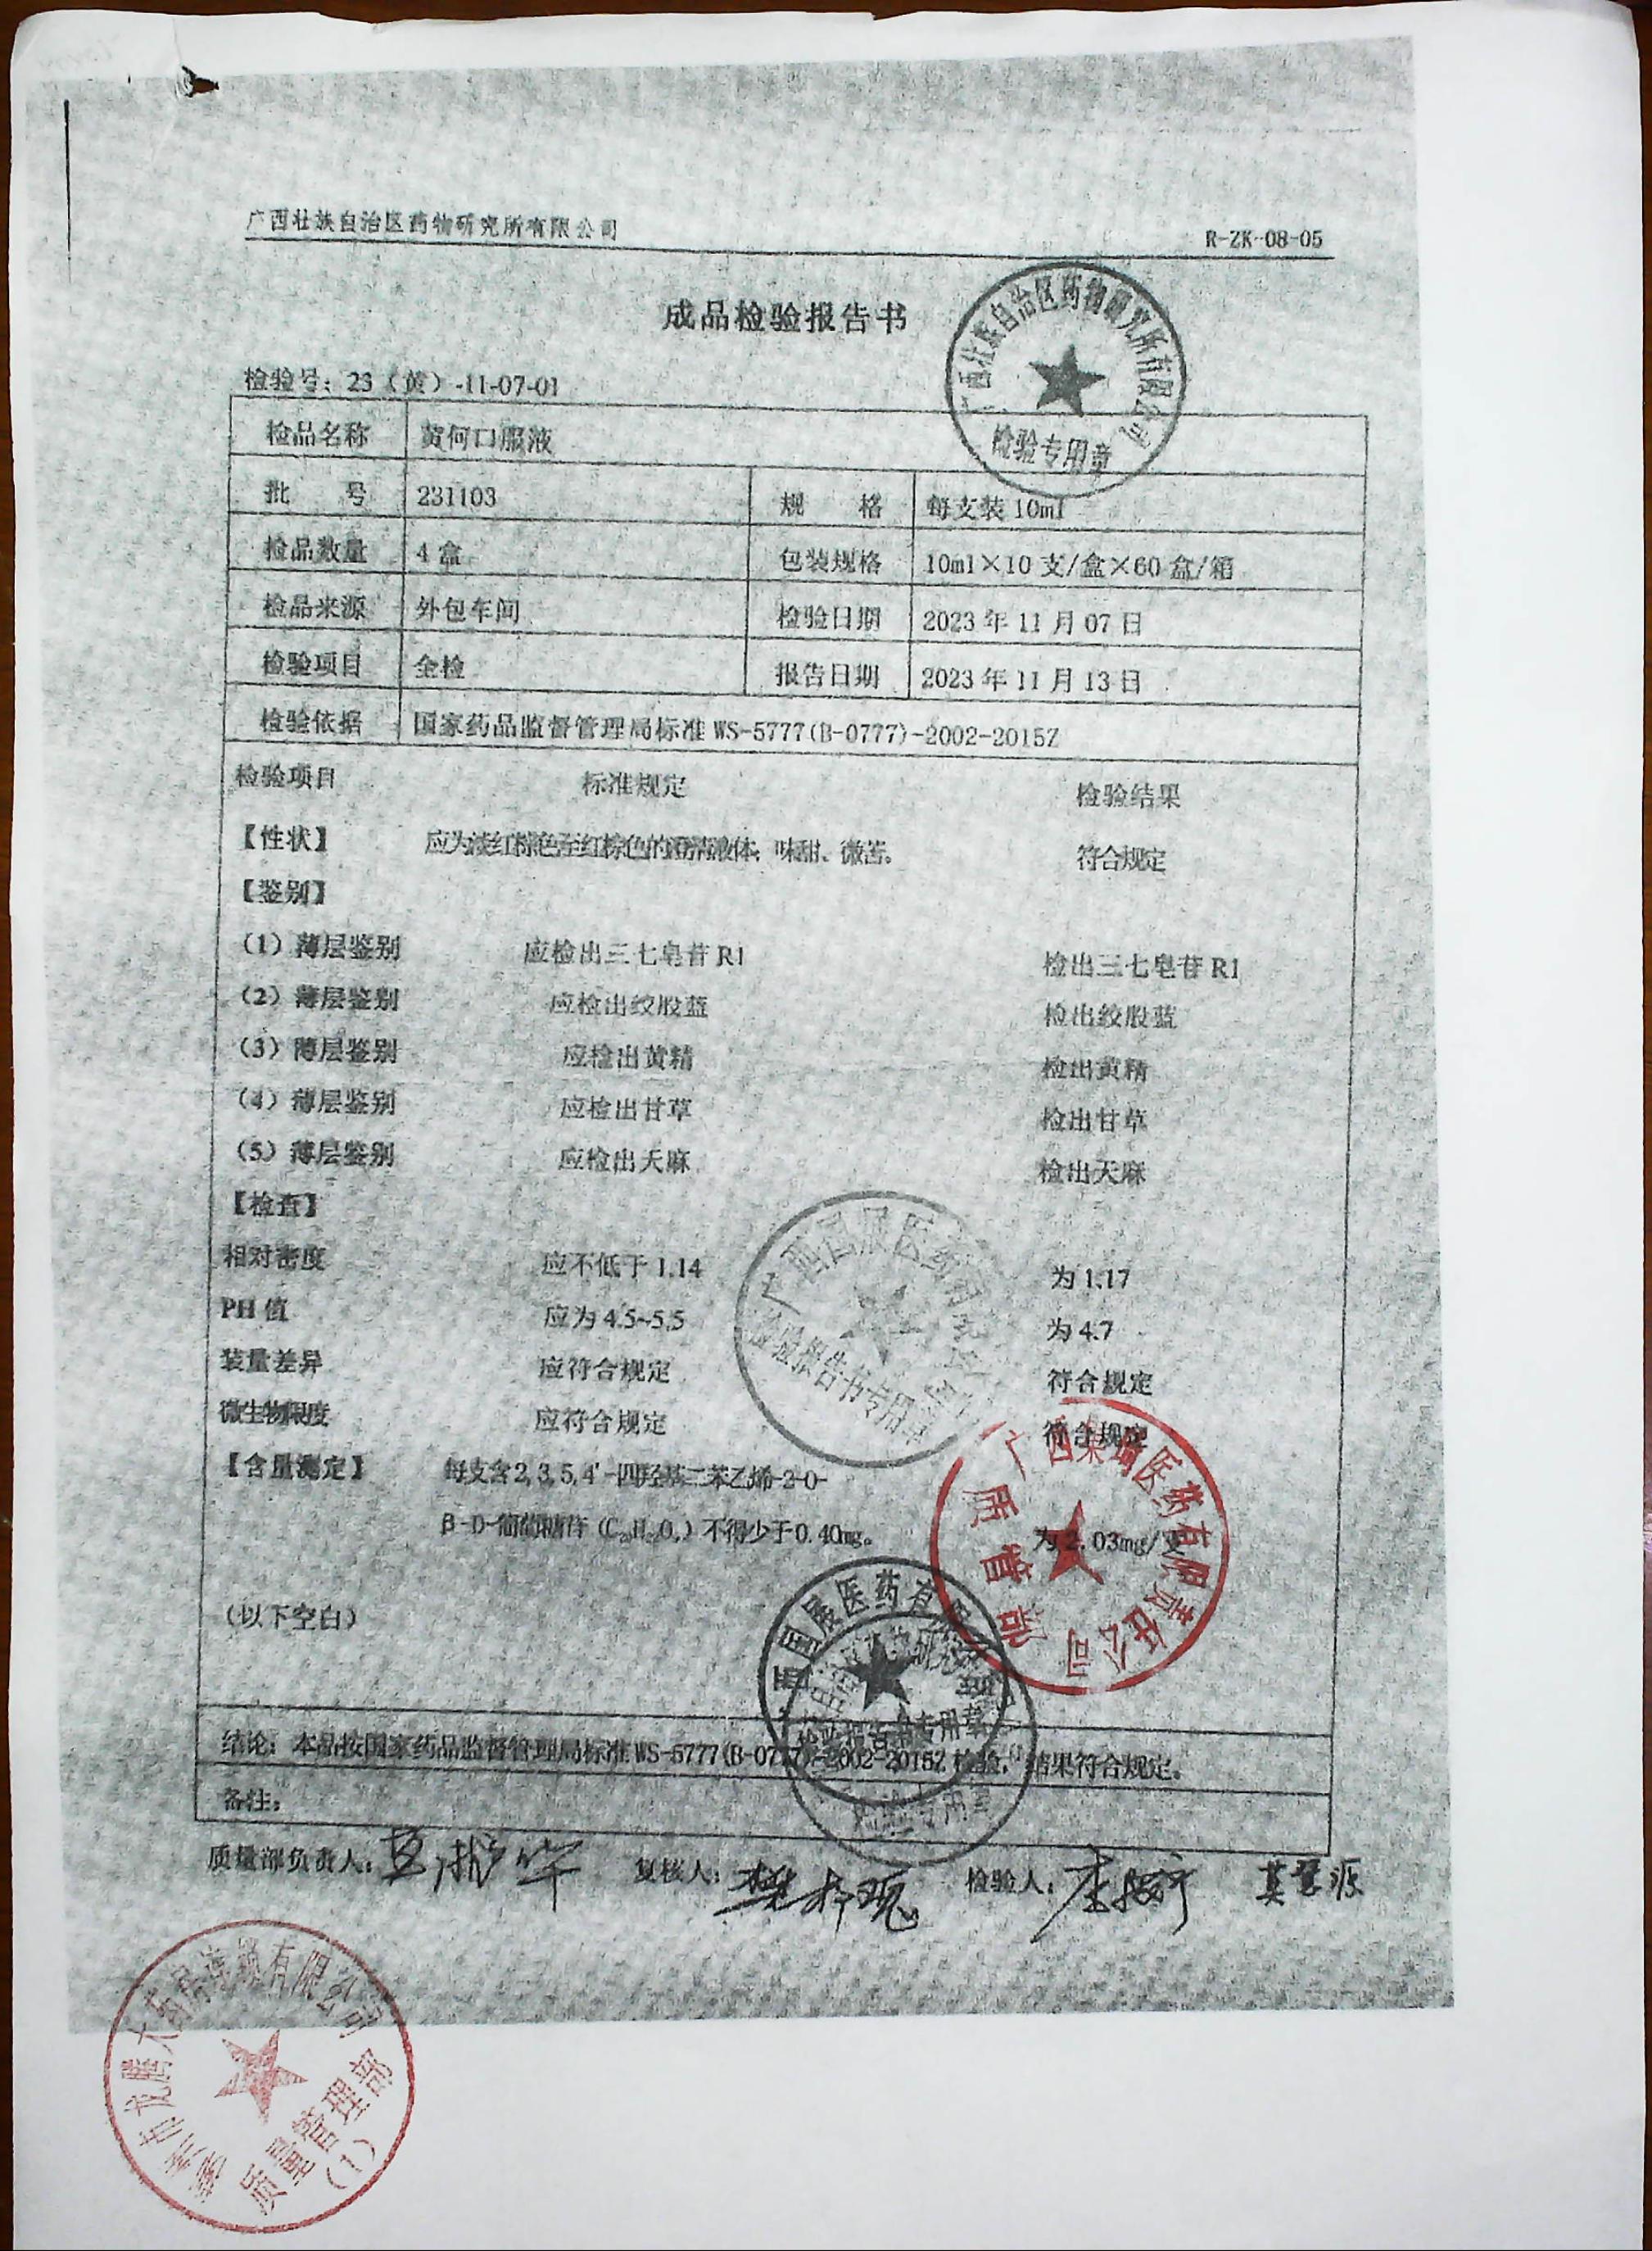 广西壮族自治区药物研究所有限公司 R-ZK-08-05
成品检验报告书
广西壮族自治区药物研究所有限公司
检验专用章
检验号：23（黄）-11-07-01
检品名称 黄何口服液
批 号 231103 规 格 每支装 10ml
检品数量 4 盒 包装规格 10ml×10 支/盒×60 盒/箱
检品来源 外包车间 检验日期 2023 年 11 月 07 日
检验项目 全检 报告日期 2023 年 11 月 13 日
检验依据 国家药品监督管理局标准 WS-5777(B-0777)-2002-2015Z
检验项目 标准规定 检验结果
【性状】 应为浅红棕色至红棕色的澄清液体；味甜、微苦。 符合规定
【鉴别】
（1）薄层鉴别 应检出三七皂苷 R1 检出三七皂苷 R1
（2）薄层鉴别 应检出绞股蓝 检出绞股蓝
（3）薄层鉴别 应检出黄精 检出黄精
（4）薄层鉴别 应检出甘草 检出甘草
（5）薄层鉴别 应检出天麻 检出天麻
【检查】
相对密度 应不低于 1.14 为 1.17
PH 值 应为 4.5~5.5 为 4.7
装量差异 应符合规定 符合规定
微生物限度 应符合规定 符合规定
【含量测定】 每支含2,3,5,4'-四羟基二苯乙烯-2-O-
β-D-葡萄糖苷 不得少于0.40mg。 为 2.03mg/支
（以下空白）
广西国展医药有限
检验报告书专用章
医药有限责任公司
质管部
国展医药有限
检验报告书专用章
检验专用
结论：本品按国家药品监督管理局标准 WS-5777(B-0777)-2002-2015Z 检验，结果符合规定。
备注：
质量部负责人： 复核人： 检验人：
大药房连锁有限公司
质量管理部
（1）